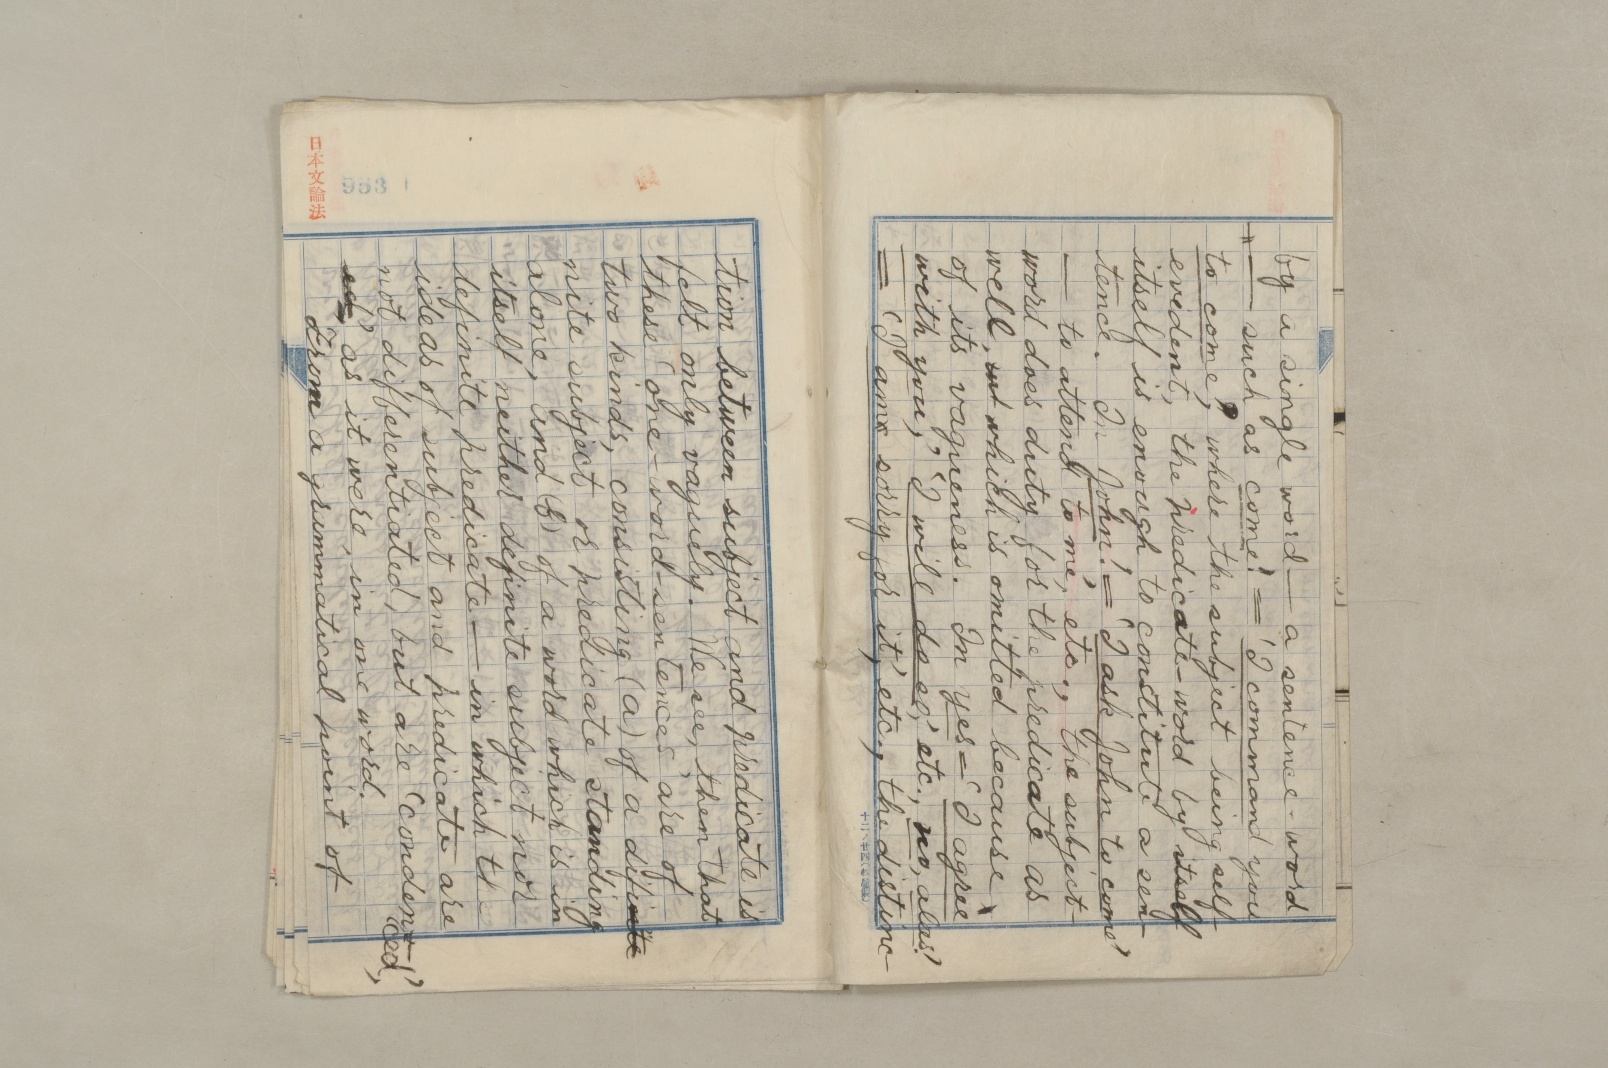 by a single word — a sentence-word
— such as come! = 'I command you
to come', where the subject being self
evident, the predicate-word by itself
itself is enough to constitute a sen-
tence. In John! = 'I ask John to come'
— to attend to me,' etc., the subject-
word does duty for the predicate as
well, which is omitted because
of its vagueness. In yes = 'I agree
with you,' 'I will do so,' etc., no, alas!
= 'I am sorry for it,' etc., the distinc-
tion between subject and predicate is
felt only vaguely. We see, then that
these 'one-word-sentences' are of
two kinds, consisting (a) of a defi
nite subject or predicate standing
alone, and (b) of a word which is in
itself neither definite subject nor
definite predicate — in which the
ideas of subject and predicate are
not differentiated, but are 'conden
ced,'
as it were, in one word.
From a grammatical point of
日本文論法
953